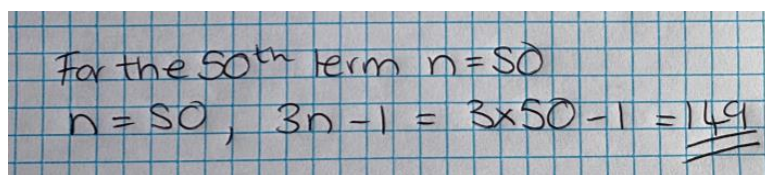 For the 50th term n = 50
n = 50, 3n - 1 = 3×50 - 1 = 149